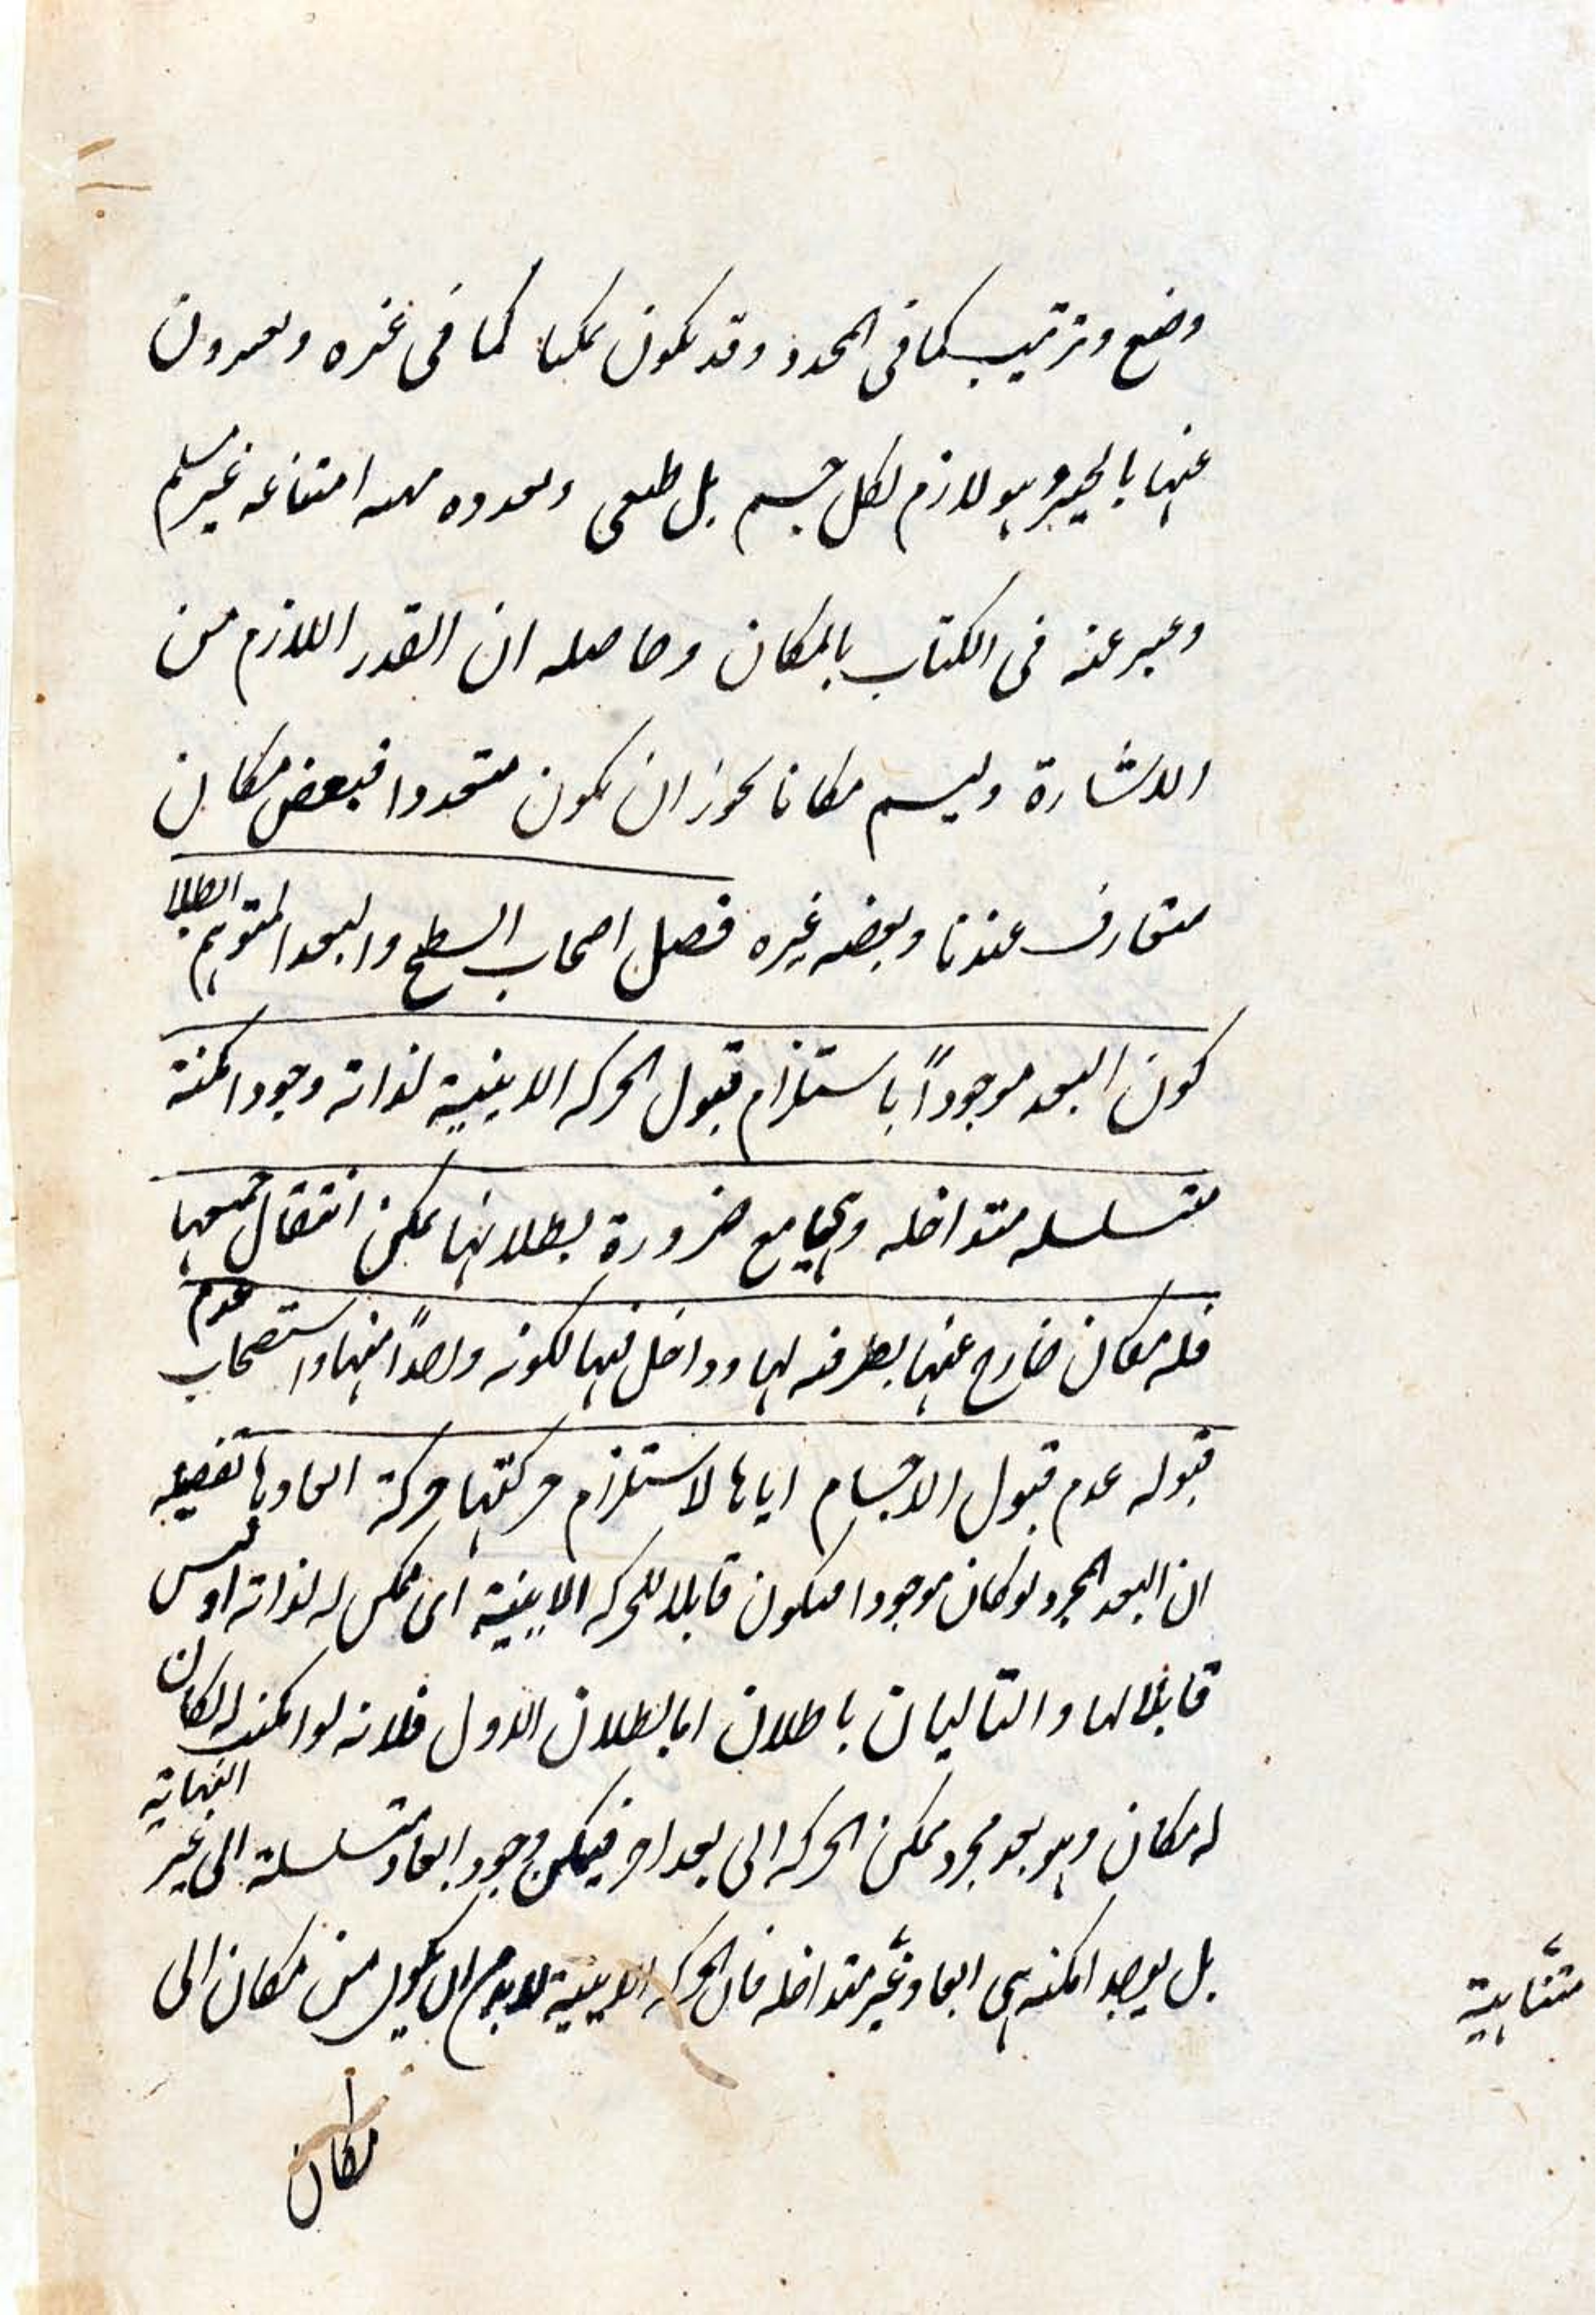 وضع وترتيب كما فى المحدد وقد يكون ممكنا كما فى غيره ويعبرون
عنها بالحيز وهو لازم لكل جسم بل طبعى امتناعه غير مسلم
وعبر عنه فى الكتاب بالمكان وحاصله ان القدر اللازم من
الاشارة وليسم مكانا يجوز ان يكون متعددا فبعض مكان
متعارف عندنا وبعضه غيره فصل اصحاب السطح والبعد المتوهم ابطلا
كون البعد موجوداً باستلزام قبول الحركه الاينية لذاته وجود امكنة
متسلسله متداخله وهى مع ضرورة بطلانها يمكن انتقال جميعها
فله مكان خارج عنها بظرفه لها وداخل فيها لكونه واحداً منها واستصحاب عدم
قبوله عدم قبول الاجسام اياها لاستلزام حركتها حركة ابعادها تفصيله
ان البعد المجرد لو كان موجودا فيكون قابلا للحركه الاينية اى ممكن له لذاته او ليس
قابلا لها والتاليان باطلان اما بطلان الاول فلانه لو امكنت له لكان
له مكان وهو بعد مجرد ممكن الحركه الى بعد اخر فيمكن وجود ابعاد متسلسلة الى غير النهاية
بل يوجد امكنه هى ابعاد غير متداخله فان الحركه الاينية لابد ان يكون من مكان الى
متناهية
مكان